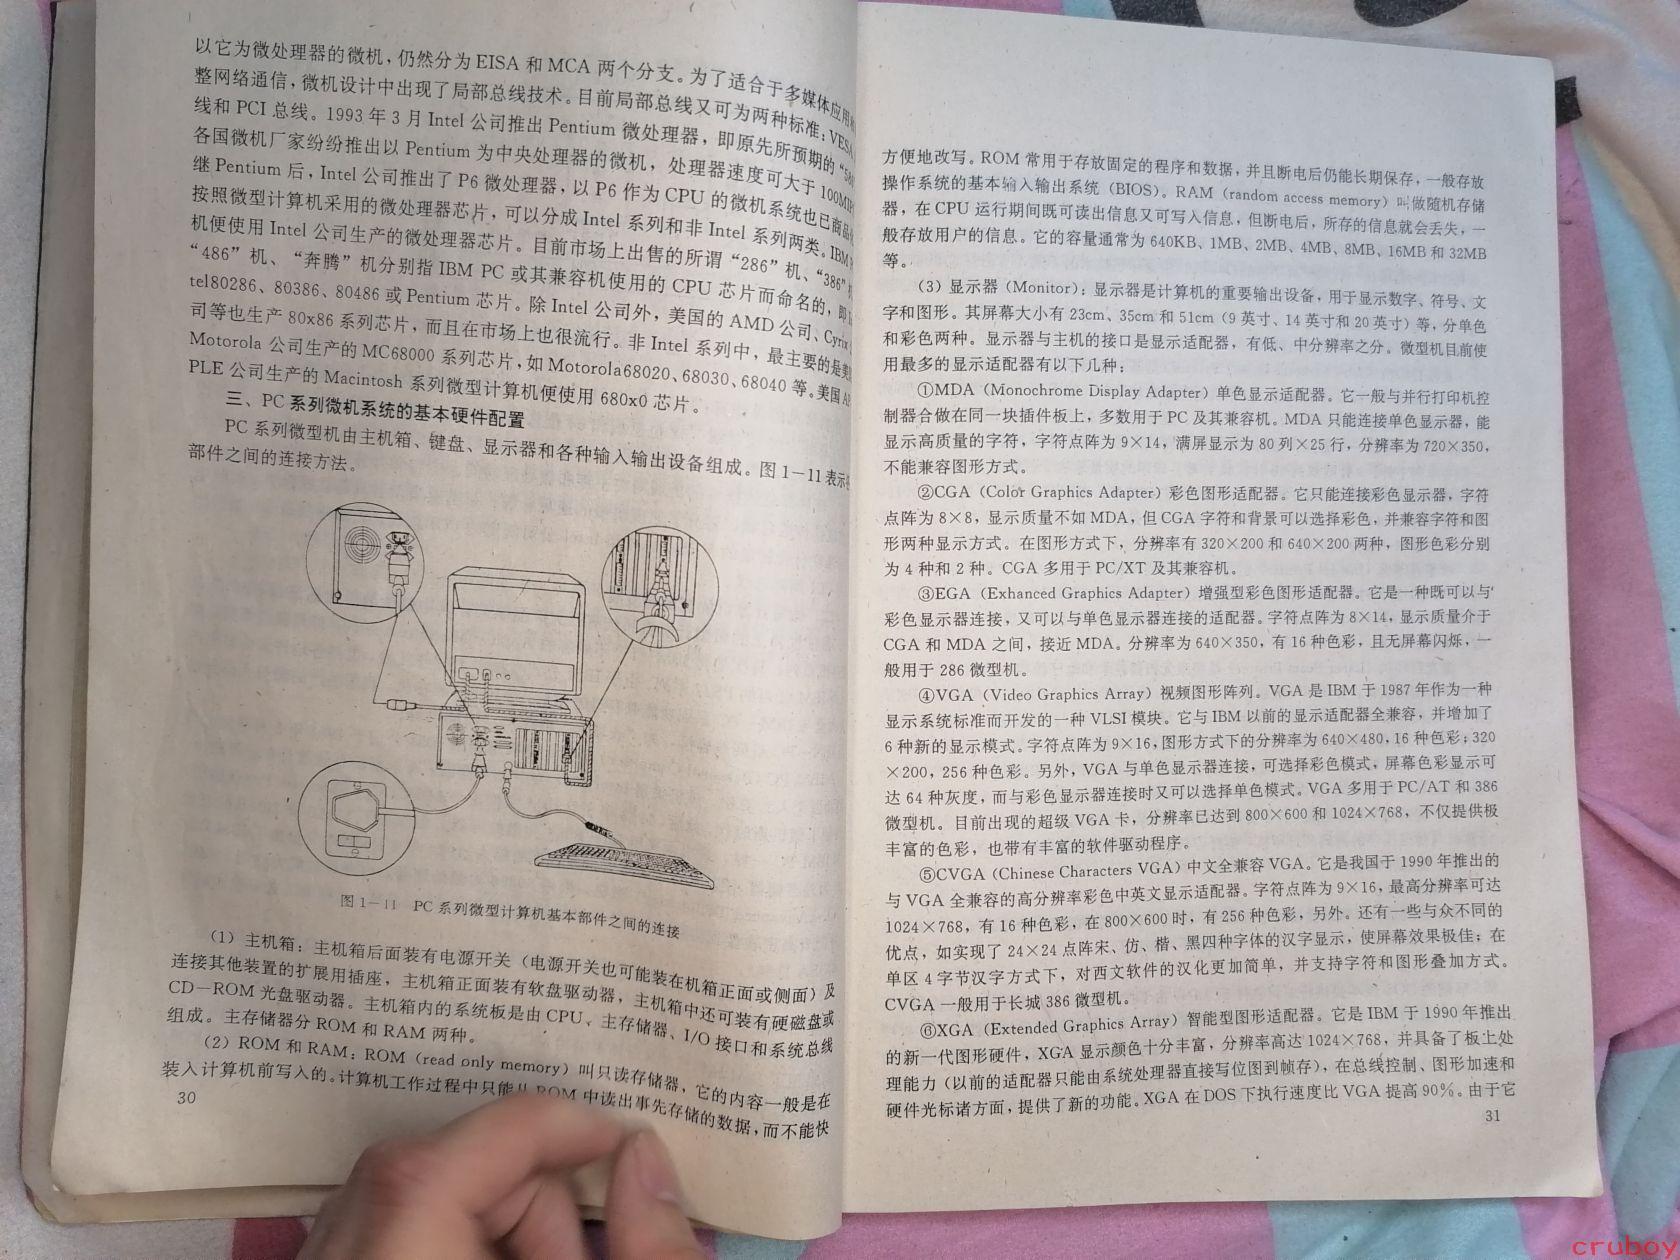 以它为微处理器的微机，仍然分为EISA 和 MCA 两个分支。为了适合于多媒体应用
整网络通信，微机设计中出现了局部总线技术。目前局部总线又可为两种标准：VESA
线和 PCI 总线。1993 年 3 月 Intel 公司推出 Pentium 微处理器，即原先所预期的“586
各国微机厂家纷纷推出以 Pentium 为中央处理器的微机，处理器速度可大于 100MIP
继 Pentium 后，Intel 公司推出了 P6 微处理器，以 P6 作为 CPU 的微机系统也已商品
按照微型计算机采用的微处理器芯片，可以分成 Intel 系列和非 Intel 系列两类。IBM
机便使用 Intel 公司生产的微处理器芯片。目前市场上出售的所谓“286”机、“386”
“486”机、“奔腾”机分别指 IBM PC 或其兼容机使用的 CPU 芯片而命名的，即
tel80286、80386、80486 或Pentium 芯片。除 Intel 公司外，美国的 AMD 公司、Cyrix
司等也生产 80x86 系列芯片，而且在市场上也很流行。非 Intel 系列中，最主要的是美
Motorola 公司生产的 MC68000 系列芯片，如 Motorola68020、68030、68040 等。美国 AP
PLE 公司生产的 Macintosh 系列微型计算机便使用 680x0 芯片。
三、PC 系列微机系统的基本硬件配置
PC 系列微型机由主机箱、键盘、显示器和各种输入输出设备组成。图 1－11 表示各
部件之间的连接方法。
图 1－11 PC 系列微型计算机基本部件之间的连接
（1）主机箱：主机箱后面装有电源开关（电源开关也可能装在机箱正面或侧面）及
连接其他装置的扩展用插座，主机箱正面装有软盘驱动器，主机箱中还可装有硬磁盘或
CD－ROM 光盘驱动器。主机箱内的系统板是由 CPU、主存储器、I/O 接口和系统总线
组成。主存储器分 ROM 和 RAM 两种。
（2）ROM 和 RAM：ROM（read only memory）叫只读存储器，它的内容一般是在
装入计算机前写入的。计算机工作过程中只能从 ROM 中读出事先存储的数据，而不能快
30
方便地改写。ROM 常用于存放固定的程序和数据，并且断电后仍能长期保存，一般存放
操作系统的基本输入输出系统（BIOS）。RAM（random access memory）叫做随机存储
器，在 CPU 运行期间既可读出信息又可写入信息，但断电后，所存的信息就会丢失，一
般存放用户的信息。它的容量通常为 640KB、1MB、2MB、4MB、8MB、16MB 和 32MB
等。
（3）显示器（Monitor）：显示器是计算机的重要输出设备，用于显示数字、符号、文
字和图形。其屏幕大小有 23cm、35cm 和 51cm（9 英寸、14 英寸和 20 英寸）等，分单色
和彩色两种。显示器与主机的接口是显示适配器，有低、中分辨率之分。微型机目前使
用最多的显示适配器有以下几种：
①MDA（Monochrome Display Adapter）单色显示适配器。它一般与并行打印机控
制器合做在同一块插件板上，多数用于 PC 及其兼容机。MDA 只能连接单色显示器，能
显示高质量的字符，字符点阵为 9×14，满屏显示为 80 列×25 行，分辨率为 720×350，
不能兼容图形方式。
②CGA（Color Graphics Adapter）彩色图形适配器。它只能连接彩色显示器，字符
点阵为 8×8，显示质量不如 MDA，但 CGA 字符和背景可以选择彩色，并兼容字符和图
形两种显示方式。在图形方式下，分辨率有 320×200 和 640×200 两种，图形色彩分别
为 4 种和 2 种。CGA 多用于 PC/XT 及其兼容机。
③EGA（Exhanced Graphics Adapter）增强型彩色图形适配器。它是一种既可以与
彩色显示器连接，又可以与单色显示器连接的适配器。字符点阵为 8×14，显示质量介于
CGA 和 MDA 之间，接近 MDA。分辨率为 640×350，有 16 种色彩，且无屏幕闪烁，一
般用于 286 微型机。
④VGA（Video Graphics Array）视频图形阵列。VGA 是 IBM 于 1987 年作为一种
显示系统标准而开发的一种 VLSI 模块。它与 IBM 以前的显示适配器全兼容，并增加了
6 种新的显示模式。字符点阵为 9×16，图形方式下的分辨率为 640×480，16 种色彩；320
×200，256 种色彩。另外，VGA 与单色显示器连接，可选择彩色模式，屏幕色彩显示可
达 64 种灰度，而与彩色显示器连接时又可以选择单色模式。VGA 多用于 PC/AT 和 386
微型机。目前出现的超级 VGA 卡，分辨率已达到 800×600 和 1024×768，不仅提供极
丰富的色彩，也带有丰富的软件驱动程序。
⑤CVGA（Chinese Characters VGA）中文全兼容 VGA。它是我国于 1990 年推出的
与 VGA 全兼容的高分辨率彩色中英文显示适配器。字符点阵为 9×16，最高分辨率可达
1024×768，有 16 种色彩，在 800×600 时，有 256 种色彩，另外。还有一些与众不同的
优点，如实现了 24×24 点阵宋、仿、楷、黑四种字体的汉字显示，使屏幕效果极佳；在
单区 4 字节汉字方式下，对西文软件的汉化更加简单，并支持字符和图形叠加方式。
CVGA 一般用于长城 386 微型机。
⑥XGA（Extended Graphics Array）智能型图形适配器。它是 IBM 于 1990 年推出
的新一代图形硬件，XGA 显示颜色十分丰富，分辨率高达 1024×768，并具备了板上处
理能力（以前的适配器只能由系统处理器直接写位图到帧存），在总线控制、图形加速和
硬件光标诸方面，提供了新的功能。XGA 在 DOS 下执行速度比 VGA 提高 90％。由于它
31
cruboy